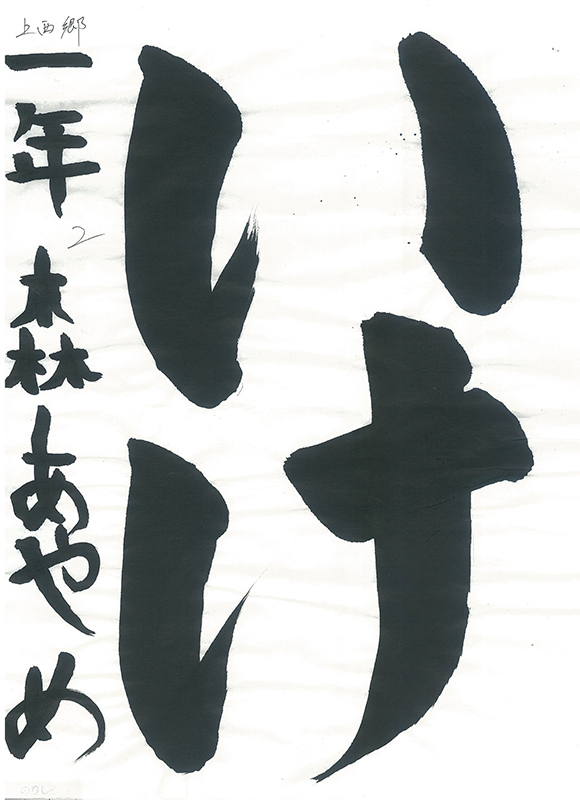 いけ
上西郷
一年 森あやめ
2